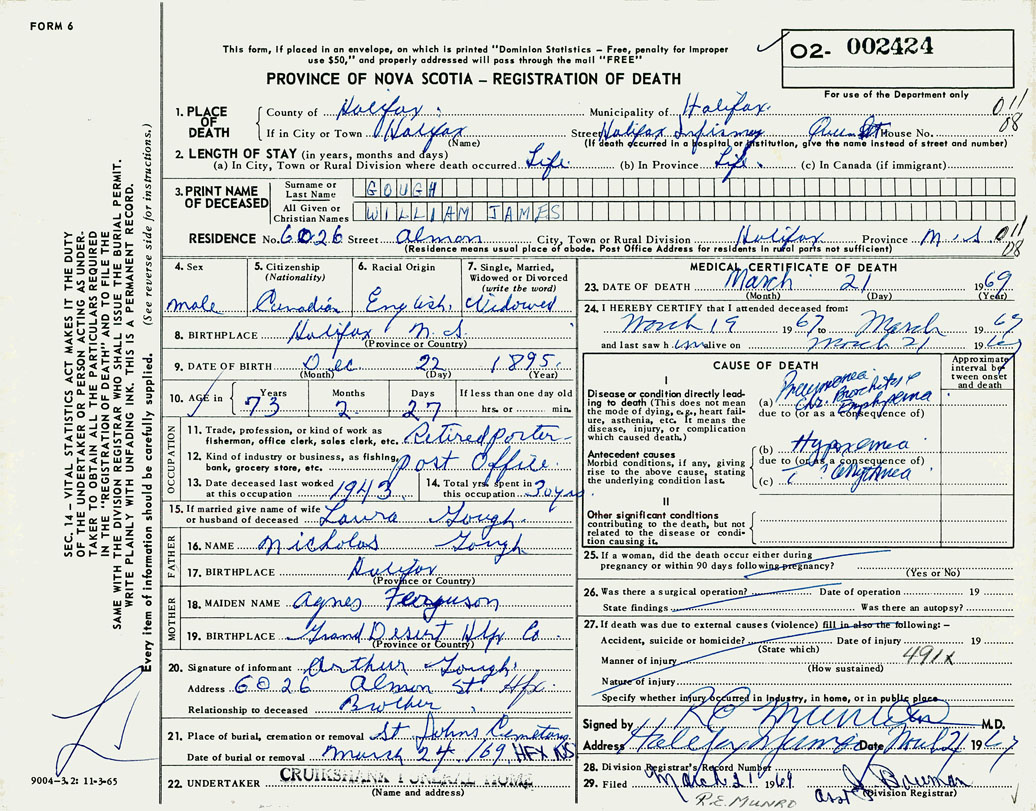 FORM 6
This form, if placed in an envelope, on which is printed "Dominion Statistics – Free, penalty for improper
use $50," and properly addressed will pass through the mail "FREE"
PROVINCE OF NOVA SCOTIA – REGISTRATION OF DEATH
02- 002424
For use of the Department only
1. PLACE OF DEATH { County of Halifax. Municipality of Halifax. 011
If in City or Town Halifax Street Halifax Infirmary Queen St House No. 08
(Name) (If death occurred in a hospital or institution, give the name instead of street and number)
2. LENGTH OF STAY (in years, months and days)
(a) In City, Town or Rural Division where death occurred Life. (b) In Province Life. (c) In Canada (if immigrant)
3. PRINT NAME OF DECEASED
Surname or Last Name GOUGH
All Given or Christian Names WILLIAM JAMES
RESIDENCE No. 6026 Street Almon City, Town or Rural Division Halifax Province N.S. 011
(Residence means usual place of abode. Post Office Address for residents in rural parts not sufficient) 08
4. Sex male
5. Citizenship (Nationality) Canadian
6. Racial Origin English.
7. Single, Married, Widowed or Divorced (write the word) Widowed
8. BIRTHPLACE Halifax N.S.
(Province or Country)
9. DATE OF BIRTH Dec 22 1895.
(Month) (Day) (Year)
10. AGE in Years 73 Months 2 Days 27 If less than one day old hrs. or min.
OCCUPATION
11. Trade, profession, or kind of work as fisherman, office clerk, sales clerk, etc. Retired porter
12. Kind of industry or business, as fishing, bank, grocery store, etc. Post Office.
13. Date deceased last worked at this occupation 1943. 14. Total yrs. spent in this occupation 30 yrs.
15. If married give name of wife or husband of deceased Laura Gough.
FATHER
16. NAME Nicholas Gough
17. BIRTHPLACE Halifax
(Province or Country)
MOTHER
18. MAIDEN NAME Agnes Ferguson
19. BIRTHPLACE Grand Desert Hfx Co.
(Province or Country)
20. Signature of informant Arthur Gough.
Address 6026 Almon St. Hfx.
Relationship to deceased Brother
21. Place of burial, cremation or removal St Johns Cemetery
Date of burial or removal March 24/69, HFX NS
22. UNDERTAKER CRUIKSHANK FUNERAL HOME
(Name and address)
MEDICAL CERTIFICATE OF DEATH
23. DATE OF DEATH March 21 1969
(Month) (Day) (Year)
24. I HEREBY CERTIFY that I attended deceased from:
March 19 1967 to March 1969
and last saw him alive on March 21 1969
CAUSE OF DEATH
Approximate interval between onset and death
I
Disease or condition directly leading to death (This does not mean the mode of dying, e.g., heart failure, asthenia, etc. It means the disease, injury, or complication which caused death.)
(a) Pneumonia Chr. Bronchitis & Emphysema
due to (or as a consequence of)
Antecedent causes
Morbid conditions, if any, giving rise to the above cause, stating the underlying condition last.
(b) Hypoxemia
due to (or as a consequence of)
(c)
II
Other significant conditions
contributing to the death, but not related to the disease or condition causing it.
25. If a woman, did the death occur either during
pregnancy or within 90 days following pregnancy?
(Yes or No)
26. Was there a surgical operation? Date of operation 19
State findings Was there an autopsy?
27. If death was due to external causes (violence) fill in also the following: –
Accident, suicide or homicide? Date of injury 19
(State which)
Manner of injury 491x
(How sustained)
Nature of injury
Specify whether injury occurred in industry, in home, or in public place
Signed by R E Munro M.D.
Address Halifax Date
28. Division Registrar's Record Number
29. Filed March 21 1969
(Division Registrar)
R.E. MUNRO
SEC. 14 – VITAL STATISTICS ACT MAKES IT THE DUTY
OF THE UNDERTAKER OR PERSON ACTING AS UNDER-
TAKER TO OBTAIN ALL THE PARTICULARS REQUIRED
IN THE "REGISTRATION OF DEATH" AND TO FILE THE
SAME WITH THE DIVISION REGISTRAR WHO SHALL ISSUE THE BURIAL PERMIT.
WRITE PLAINLY WITH UNFADING INK. THIS IS A PERMANENT RECORD.
Every item of information should be carefully supplied. (See reverse side for instructions.)
9004–3.2: 11-3-65